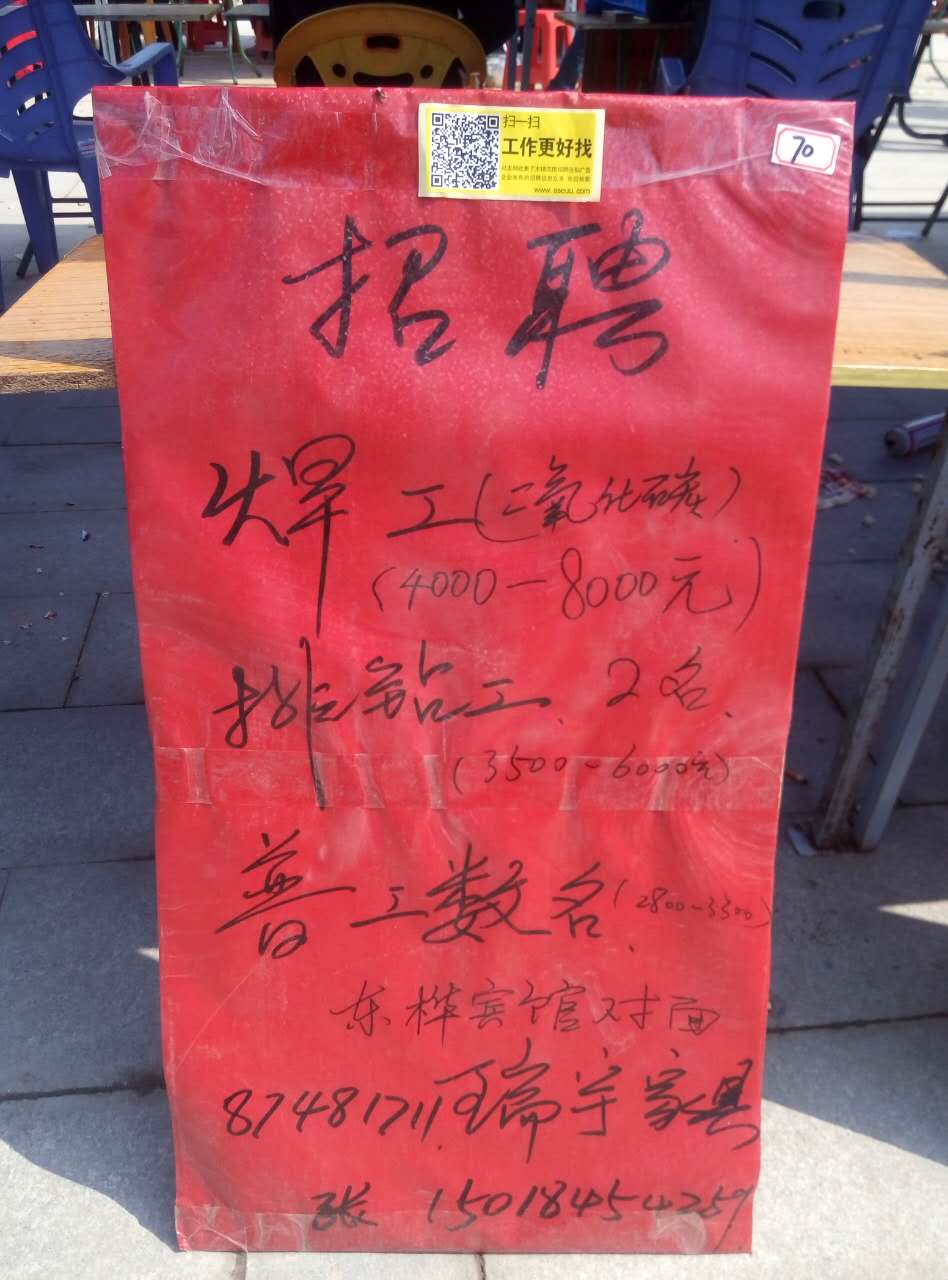 扫一扫
工作更好找
www.aseuu.com
70
招聘
焊工(二氧化碳)
(4000-8000元)
排钻工、2名、
(3500-6000元)
普工数名、(2800-3300)
东桦宾馆对面
87481711 瑞宇家具
张 15018454259